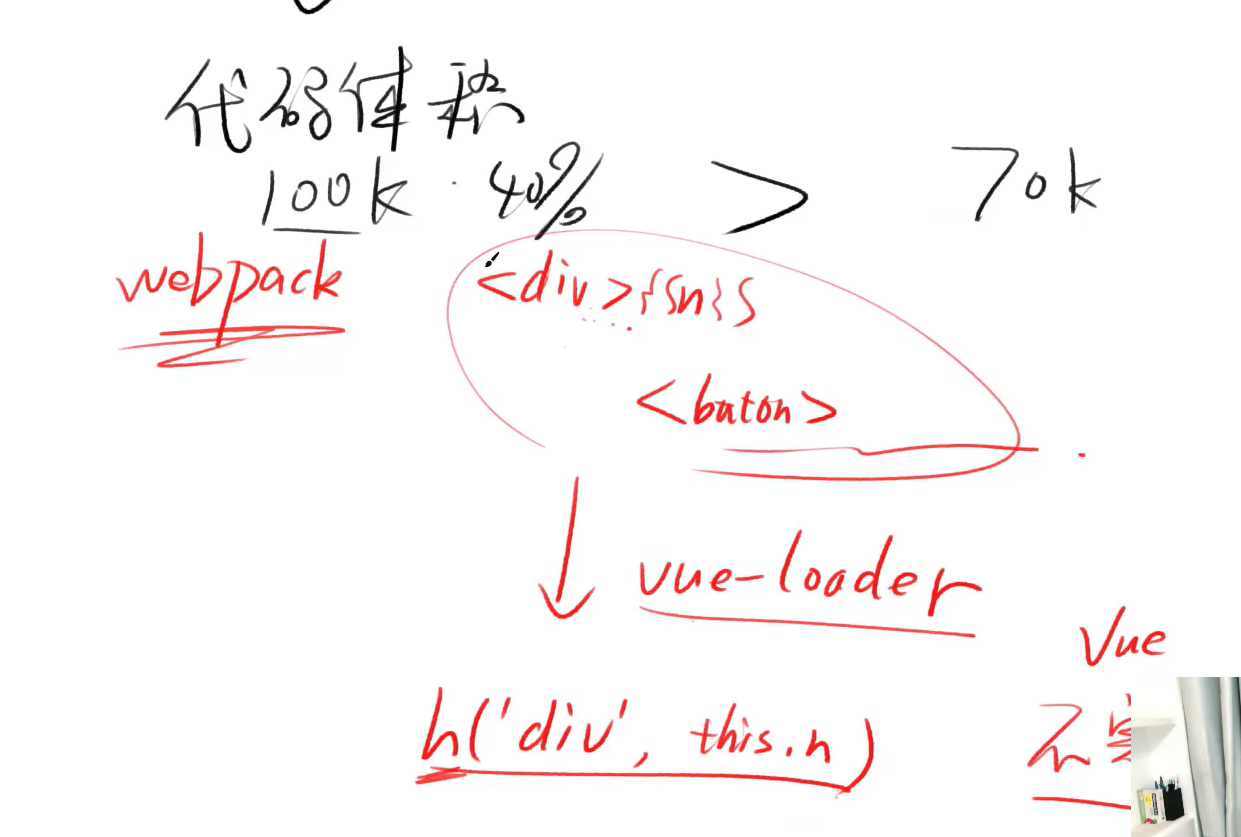 代码体积
100k · 40% > 70k
webpack
<div>{{n}}
<baton>
vue-loader
Vue
h('div', this.n)